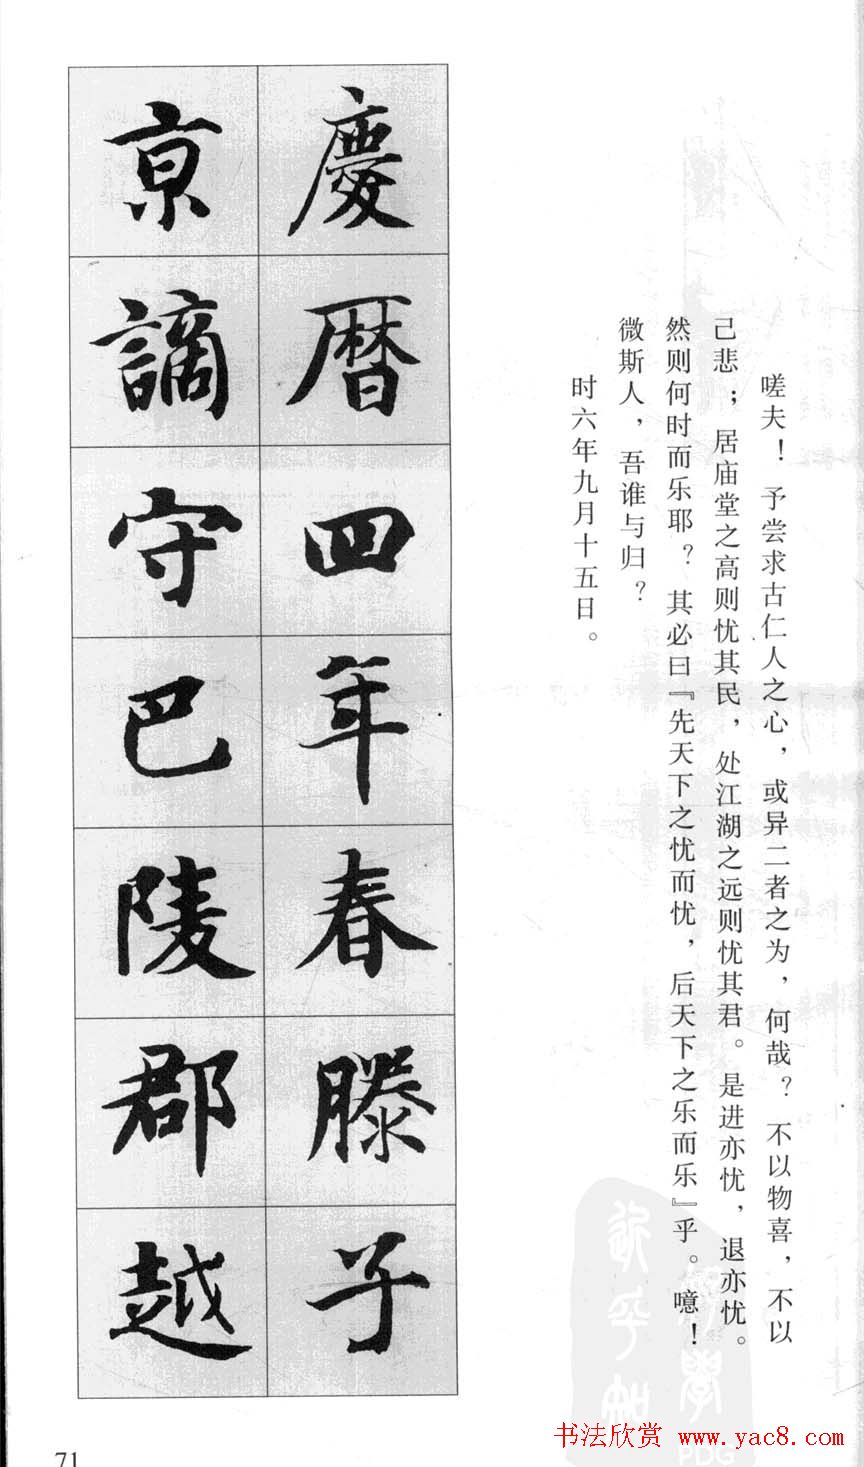 嗟夫！予尝求古仁人之心，或异二者之为，何哉？不以物喜，不以
己悲；居庙堂之高则忧其民，处江湖之远则忧其君。是进亦忧，退亦忧。
然则何时而乐耶？其必曰『先天下之忧而忧，后天下之乐而乐』乎。噫！
微斯人，吾谁与归？
时六年九月十五日。
慶暦四年春滕子
亰謫守巴陵郡越
71
书法欣赏 www.yac8.com
PDG